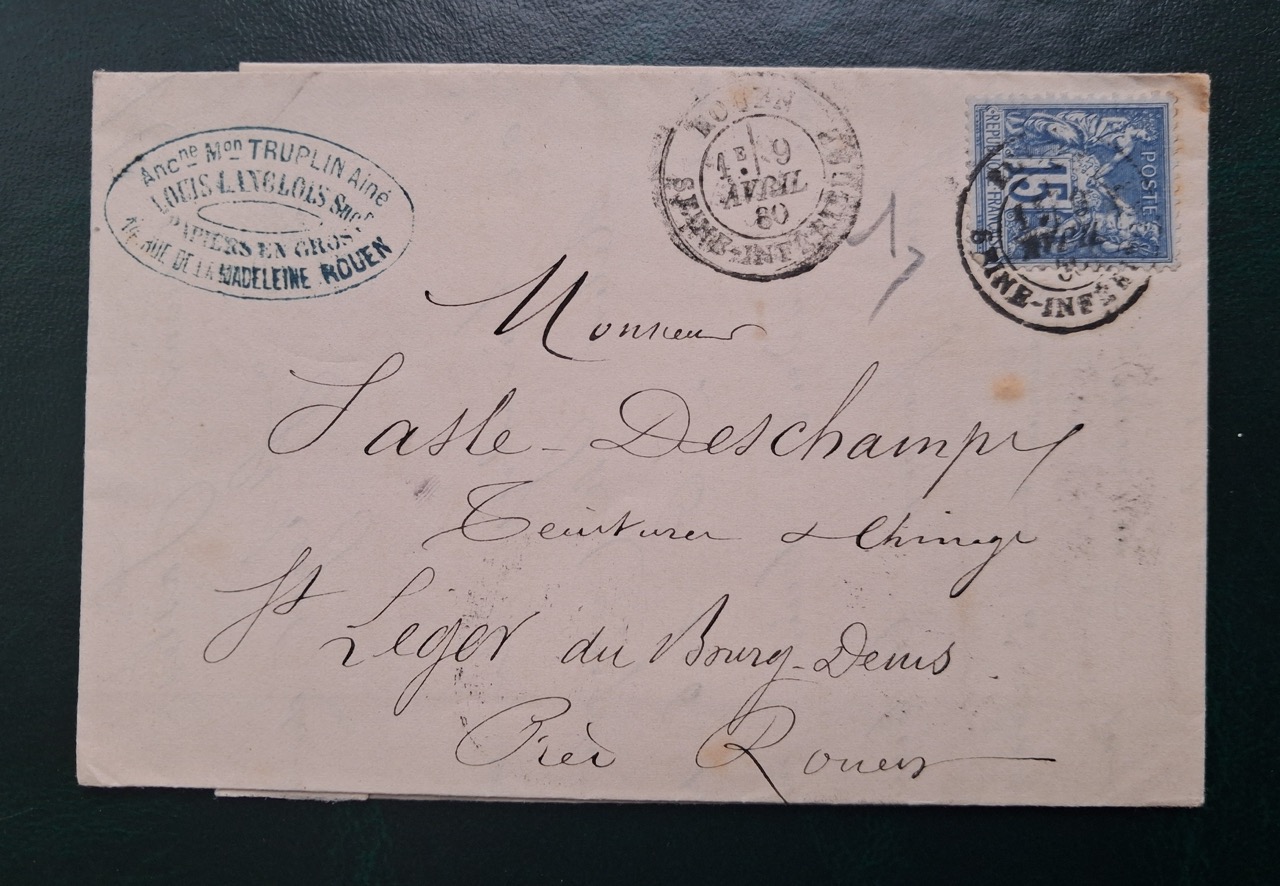 Ancne Mon TRUPLIN Ainé
LOUIS LANGLOIS Sucr
PAPIERS EN GROS
RUE DE LA MADELEINE ROUEN
ROUEN
1E 9
AVRIL
80
SEINE-INFÉRIEURE
REPUBLIQUE FRANÇAISE
15
POSTE
9
AVRIL
80
SEINE-INFÉR
Monsieur
Sasle-Deschamps
Teinturier & Chinage
St Leger du Bourg-Denis
Près Rouen